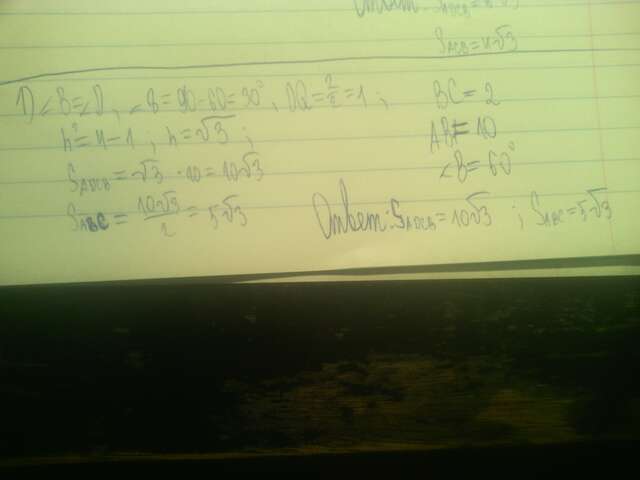 Ответ: S
S_ACB = 4√3
1) ∠B = ∠D, ∠B = 90-60 = 30°, DQ = 2/2 = 1;
h² = 4-1; h = √3;
S_ADCB = √3 · 10 = 10√3
S_ABC = 10√3/2 = 5√3
BC = 2
AB = 10
∠B = 60°
Ответ: S_ADCB = 10√3 ; S_ABC = 5√3